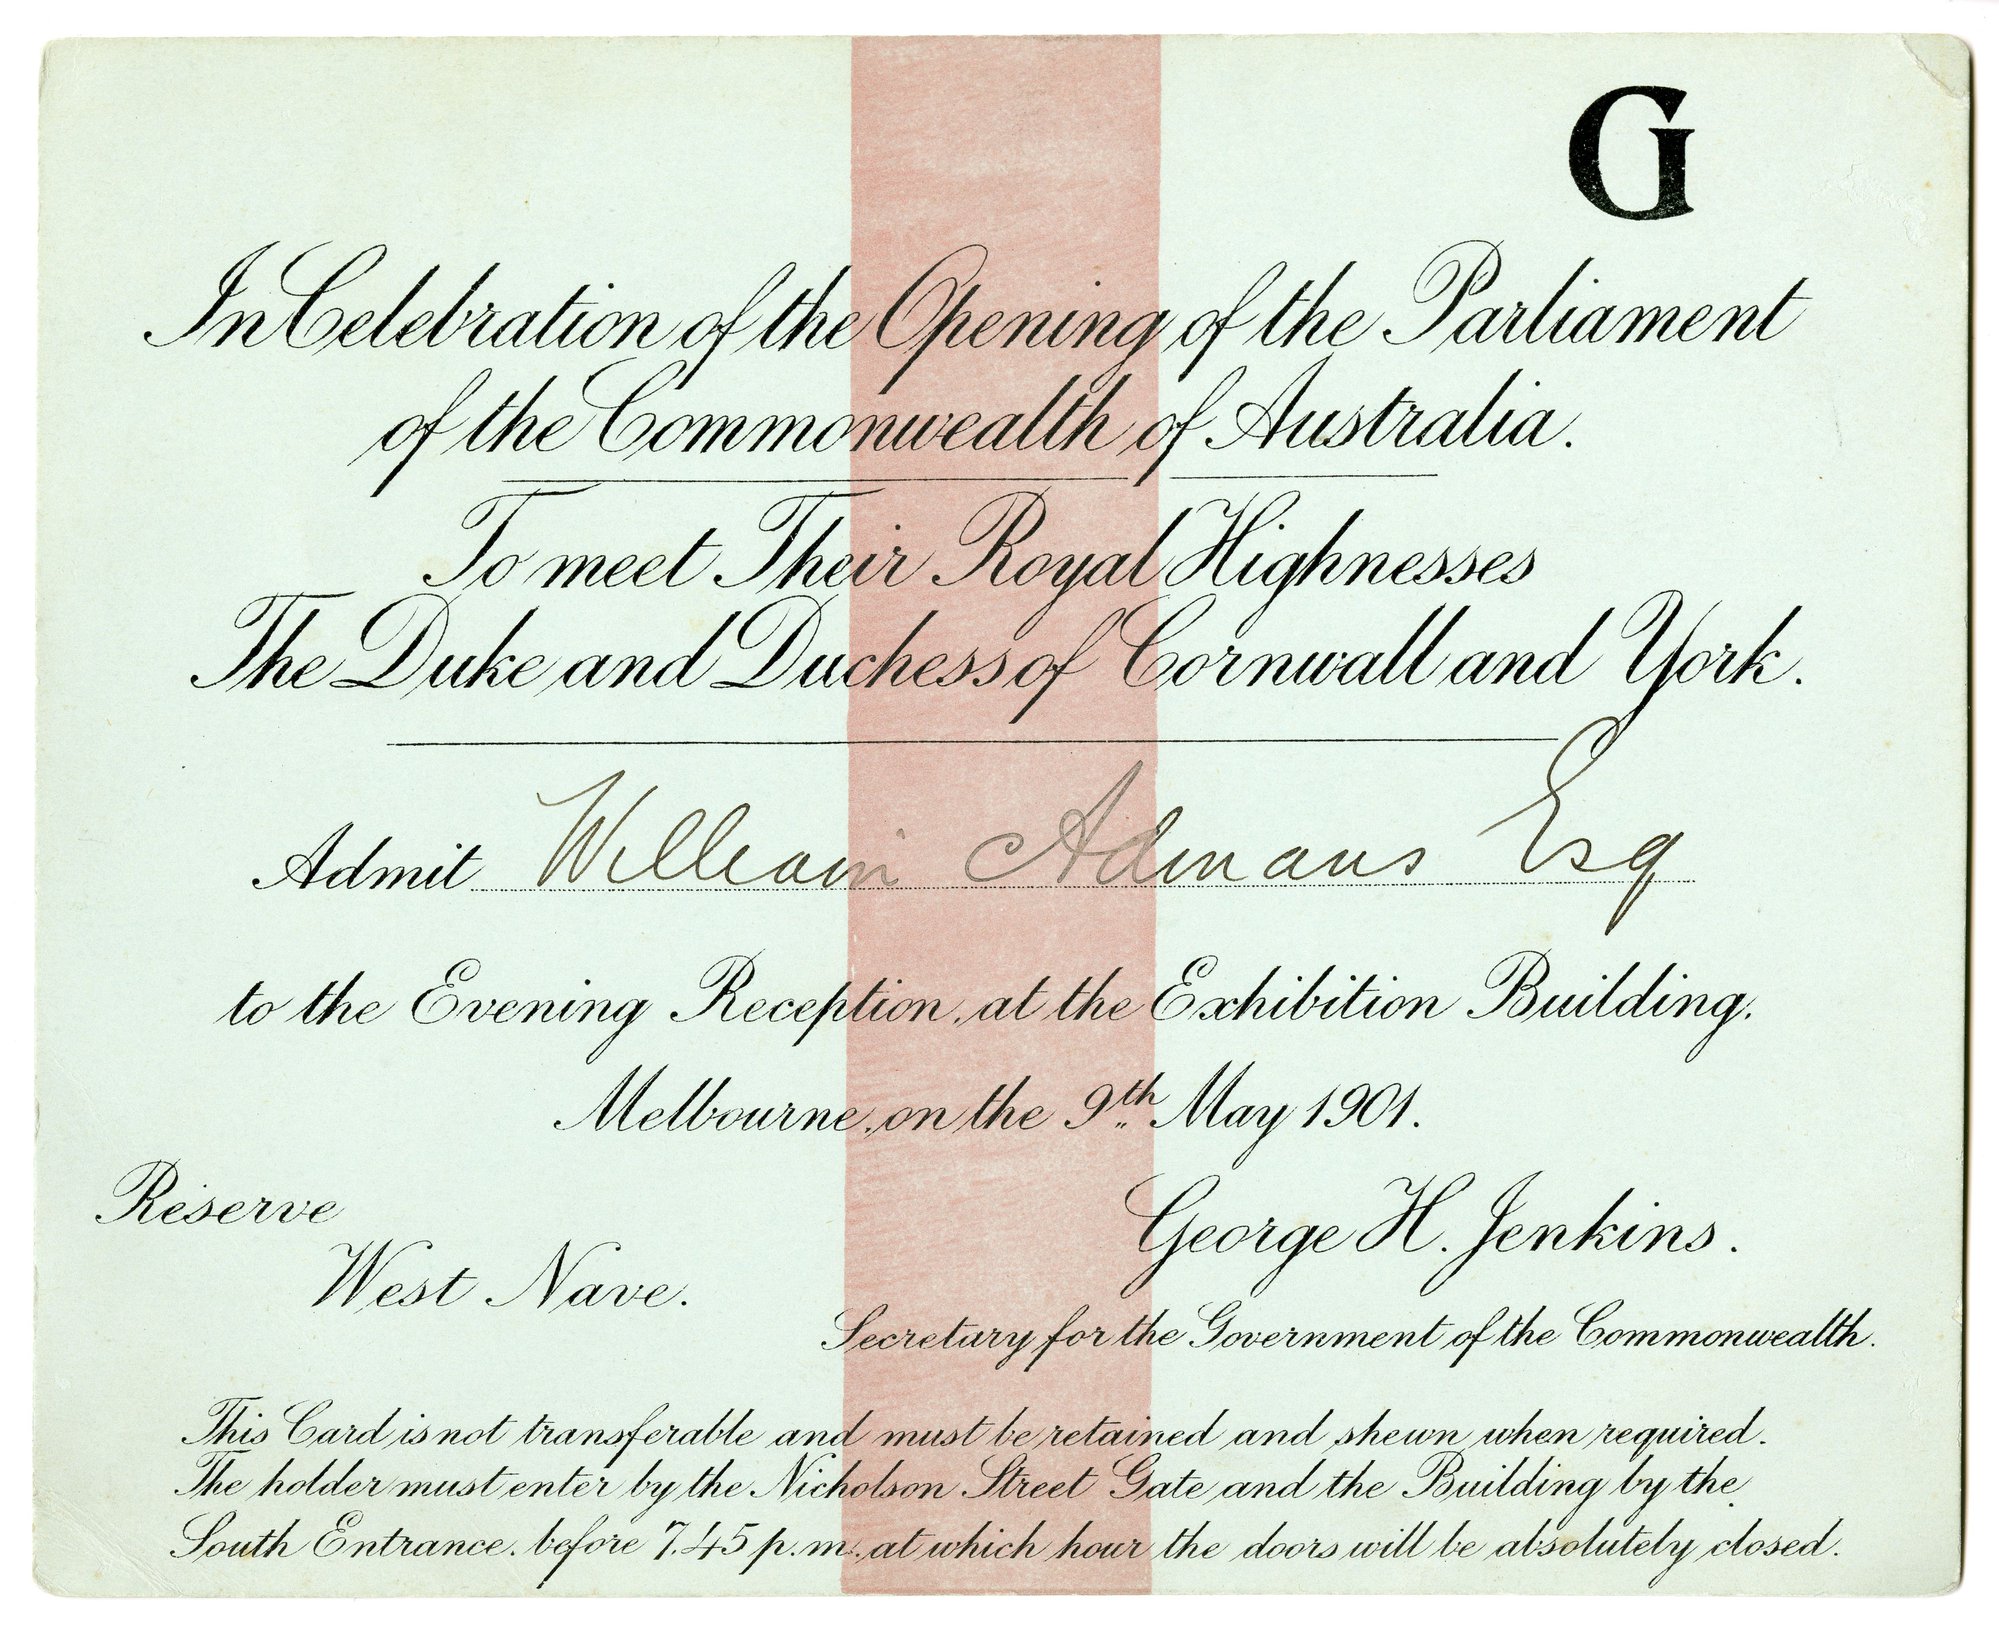 G
In Celebration of the Opening of the Parliament
of the Commonwealth of Australia.
To meet Their Royal Highnesses
The Duke and Duchess of Cornwall and York.
Admit William Admans Esq
to the Evening Reception, at the Exhibition Building,
Melbourne, on the 9th May 1901.
Reserve
West Nave.
George H. Jenkins.
Secretary for the Government of the Commonwealth.
This Card is not transferable and must be retained and shewn when required.
The holder must enter by the Nicholson Street Gate and the Building by the
South Entrance, before 7.45 p.m. at which hour the doors will be absolutely closed.